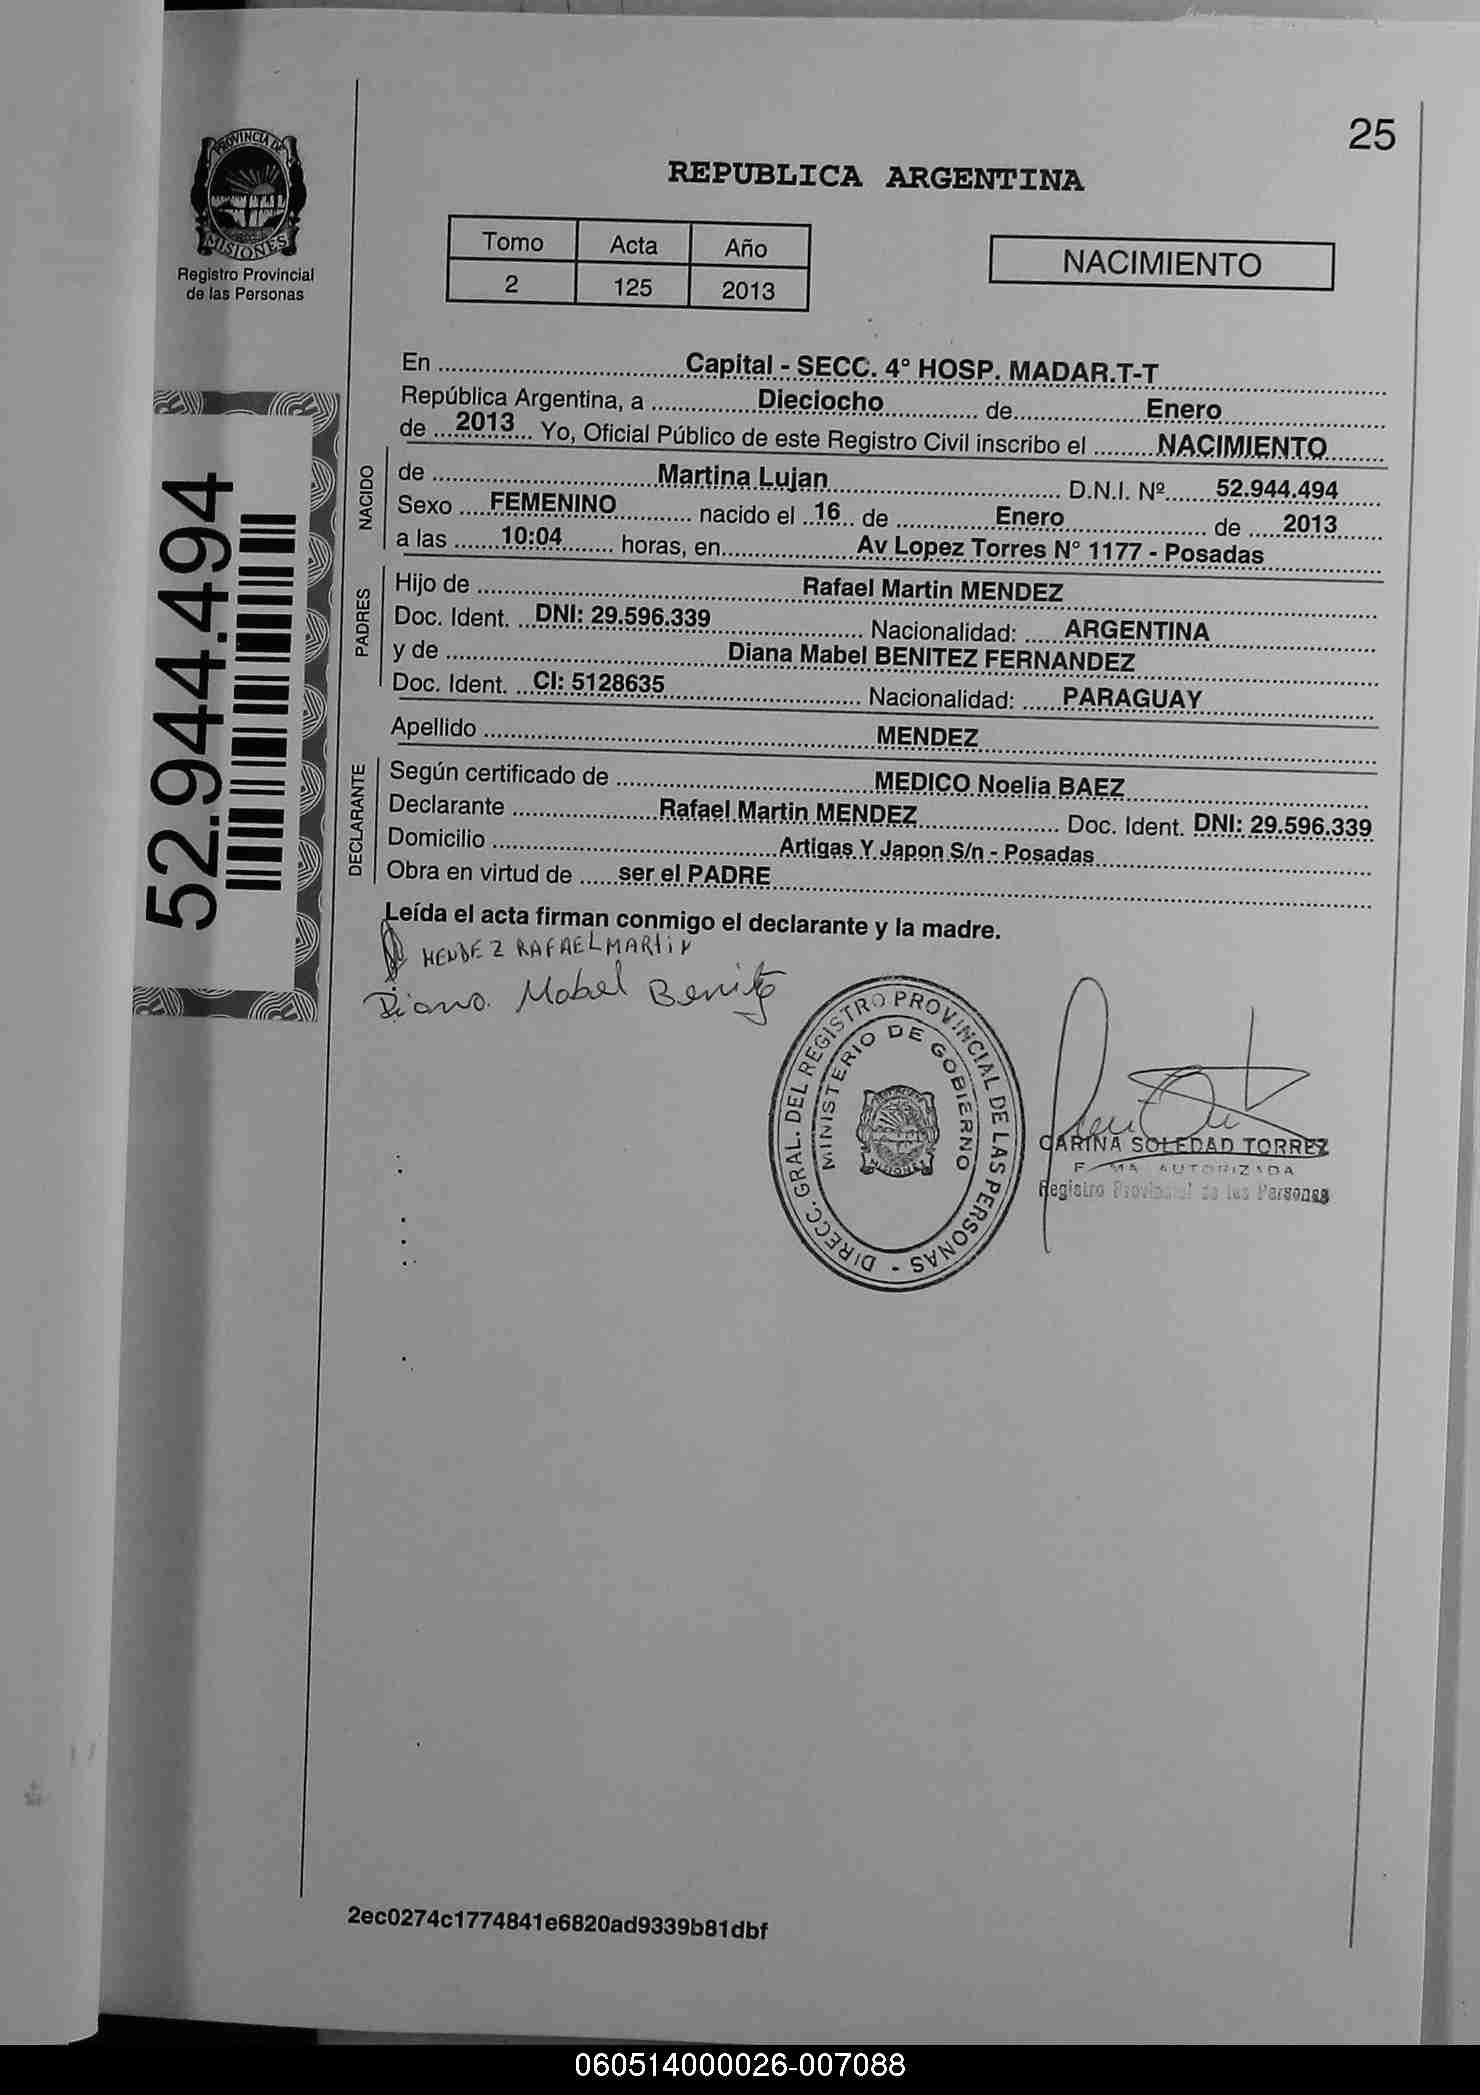 25
PROVINCIA DE
MISIONES
Registro Provincial
de las Personas
REPUBLICA ARGENTINA
Tomo Acta Año
2 125 2013
NACIMIENTO
En ........ Capital - SECC. 4° HOSP. MADAR.T-T
República Argentina, a ........ Dieciocho ........ de ........ Enero
de ... 2013 ... Yo, Oficial Público de este Registro Civil inscribo el ........ NACIMIENTO
NACIDO
de ........ Martina Lujan ........ D.N.I. Nº ........ 52.944.494
Sexo .... FEMENINO ........ nacido el .. 16 .. de ........ Enero ........ de ..... 2013
a las ....... 10:04 ....... horas, en ........ Av Lopez Torres N° 1177 - Posadas
PADRES
Hijo de ........ Rafael Martin MENDEZ
Doc. Ident. .. DNI: 29.596.339 ........ Nacionalidad: ..... ARGENTINA
y de ........ Diana Mabel BENITEZ FERNANDEZ
Doc. Ident. .. CI: 5128635 ........ Nacionalidad: ..... PARAGUAY
Apellido ........ MENDEZ
DECLARANTE
Según certificado de ........ MEDICO Noelia BAEZ
Declarante ........ Rafael Martin MENDEZ ........ Doc. Ident. DNI: 29.596.339
Domicilio ........ Artigas Y Japon S/n - Posadas
Obra en virtud de ..... ser el PADRE
Leída el acta firman conmigo el declarante y la madre.
MENDEZ RAFAEL MARTIN
Diana Mabel Benitez
52.944.494
DIRECC. GRAL. DEL REGISTRO PROVINCIAL DE LAS PERSONAS -
MINISTERIO DE GOBIERNO
MISIONES
CARINA SOLEDAD TORREZ
FIRMA AUTORIZADA
Registro Provincial de las Personas
2ec0274c1774841e6820ad9339b81dbf
060514000026-007088